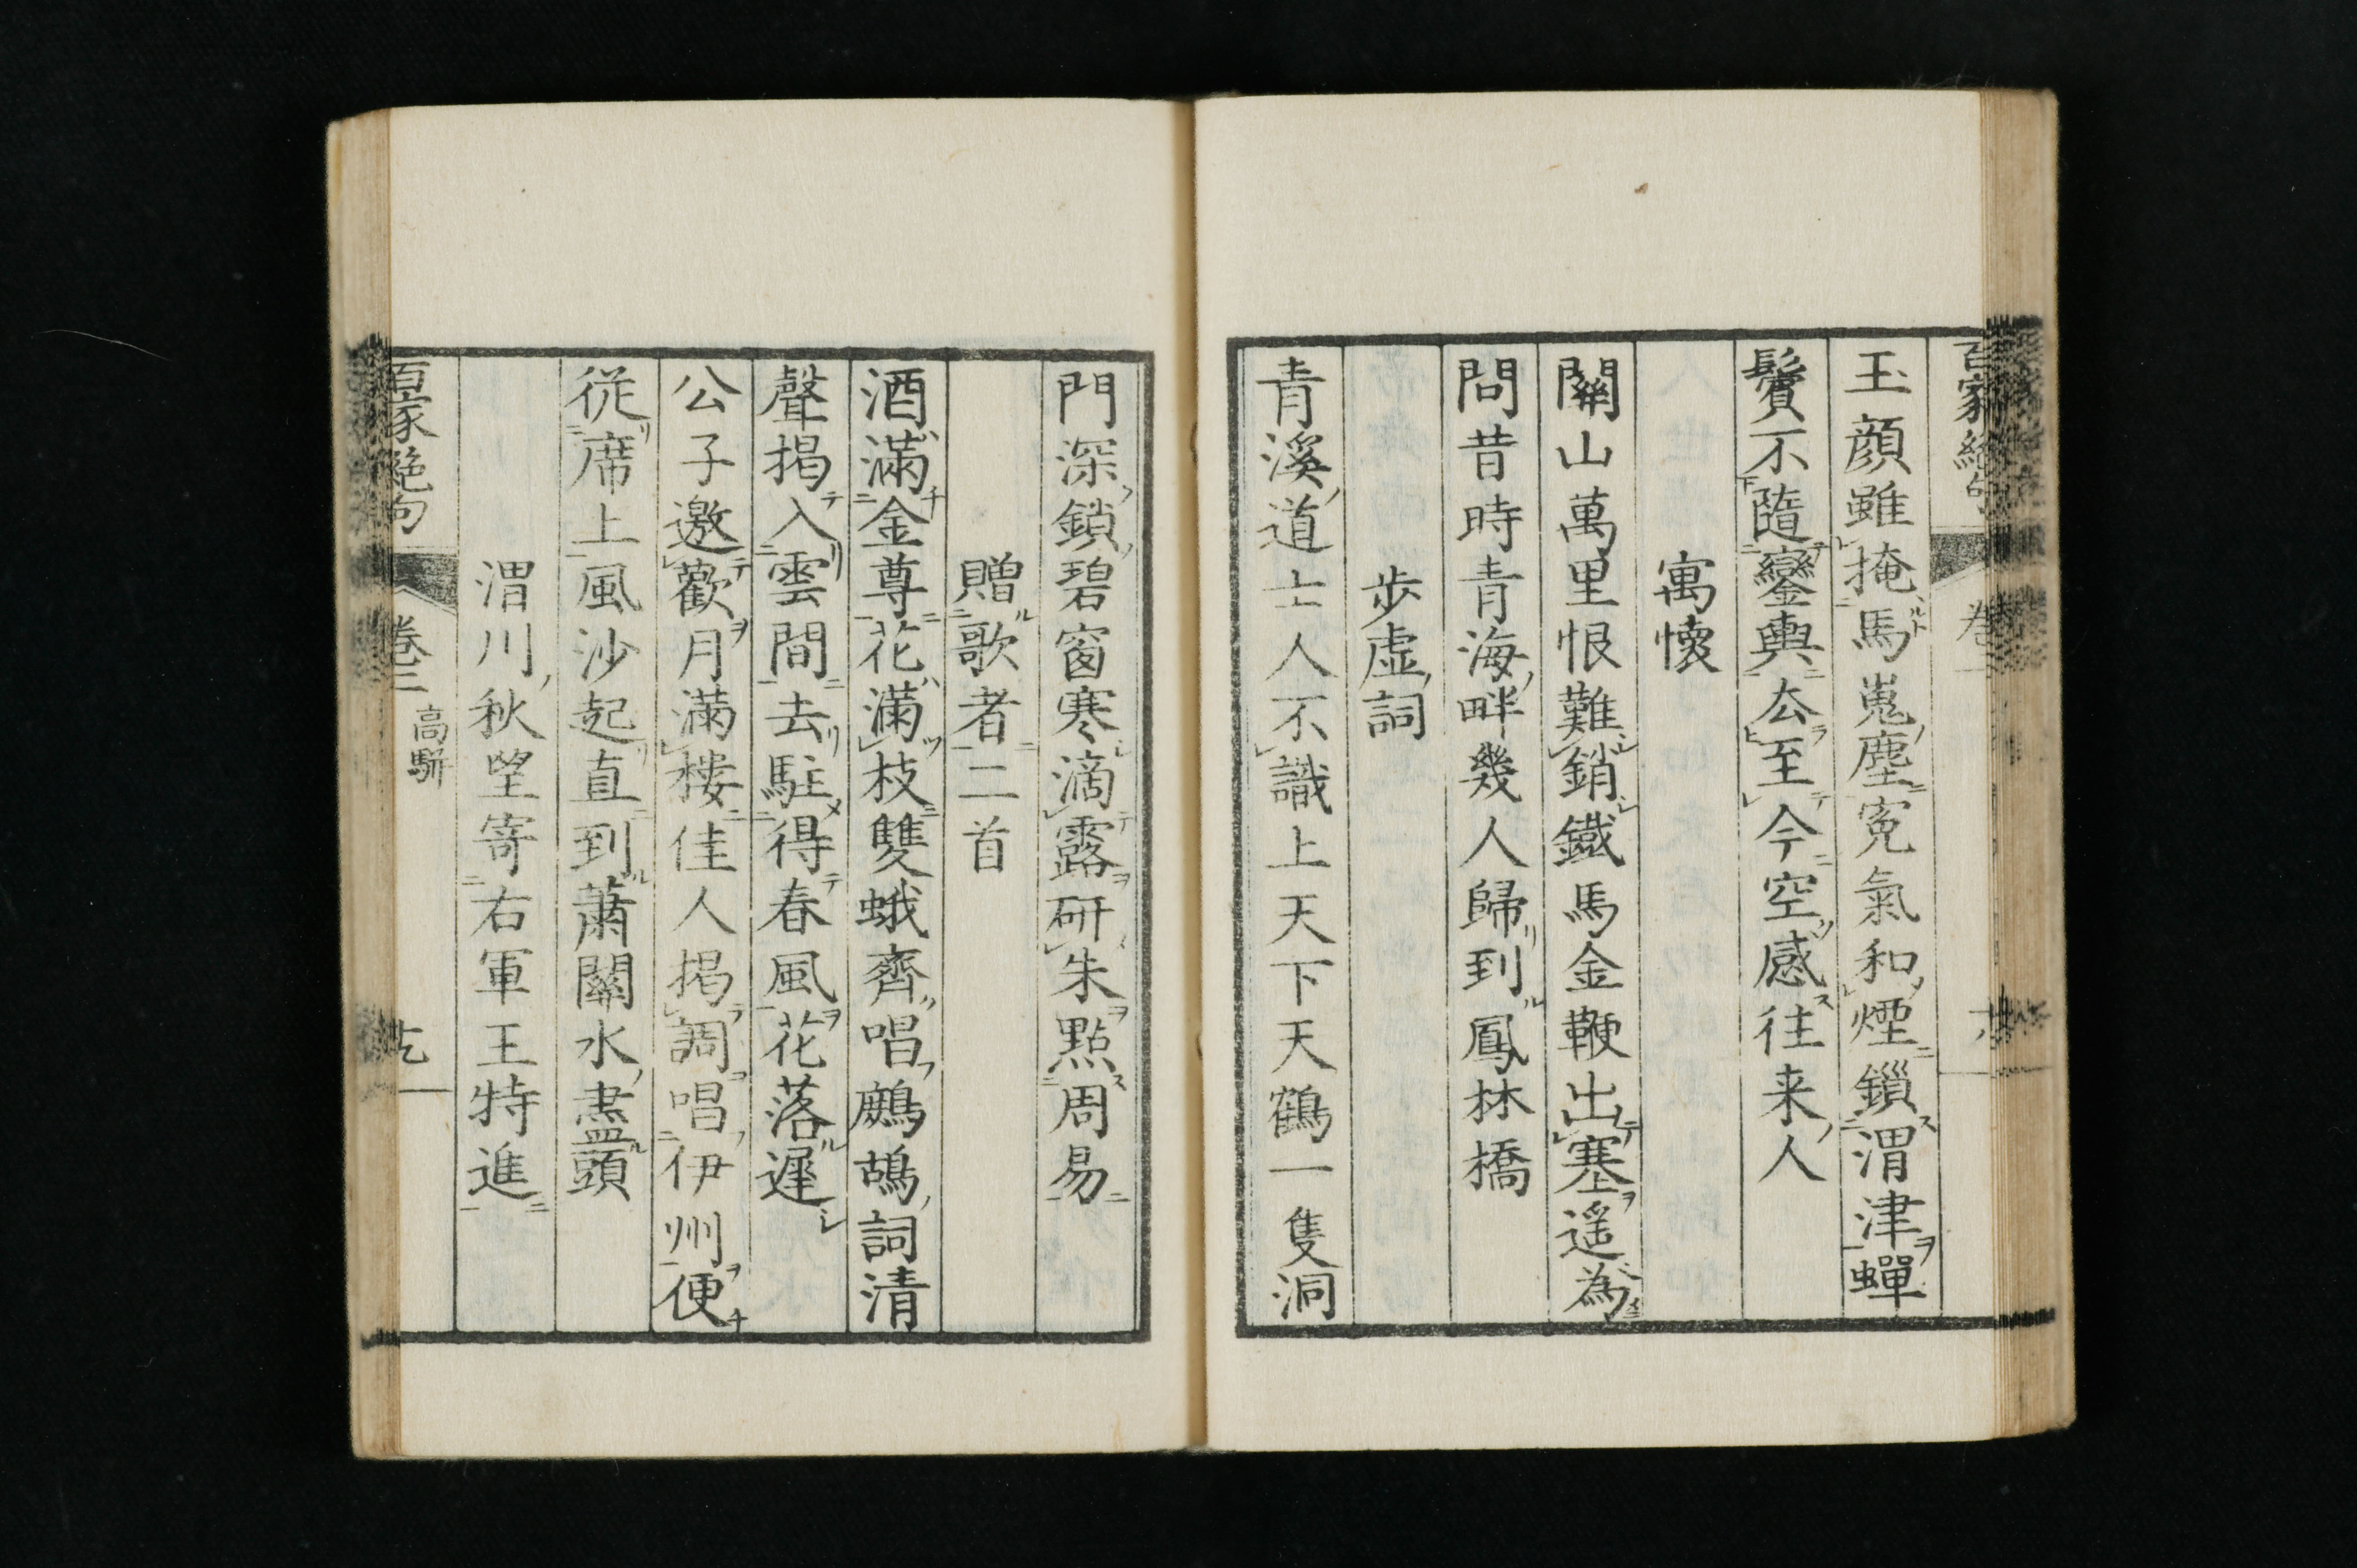 百家絶句
玉顔雖掩馬嵬塵冤氣和煙鎖渭津蟬
鬢不隨鑾輿去至今空感往来人
寓懷
關山萬里恨難銷鐵馬金鞭出塞遥為
問昔時青海畔幾人歸到鳳林橋
歩虚詞
青溪道士人不識上天下天鶴一隻洞
門深鎖碧窗寒滴露研朱點周易
贈歌者二首
酒滿金尊花滿枝雙蛾齊唱鷓鴣詞清
聲揭入雲間去駐得春風花落遲
公子邀歡月滿樓佳人揭調唱伊州便
従席上風沙起直到蕭關水盡頭
渭川秋望寄右軍王特進
百家絶句 卷二 高駢